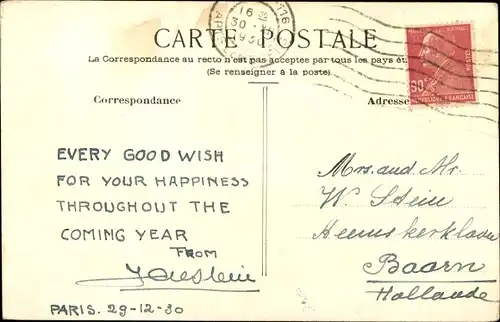 CARTE POSTALE
La Correspondance au recto n'est pas acceptée par tous les pays ét.
(Se renseigner à la poste)
Correspondance
Adresse
90c
RÉPUBLIQUE FRANÇAISE
POSTES
116
16
30
EVERY GOOD WISH
FOR YOUR HAPPINESS
THROUGHOUT THE
COMING YEAR
FROM
PARIS. 29-12-30
Mrs. and Mr.
W Stein
Baarn
Hollande